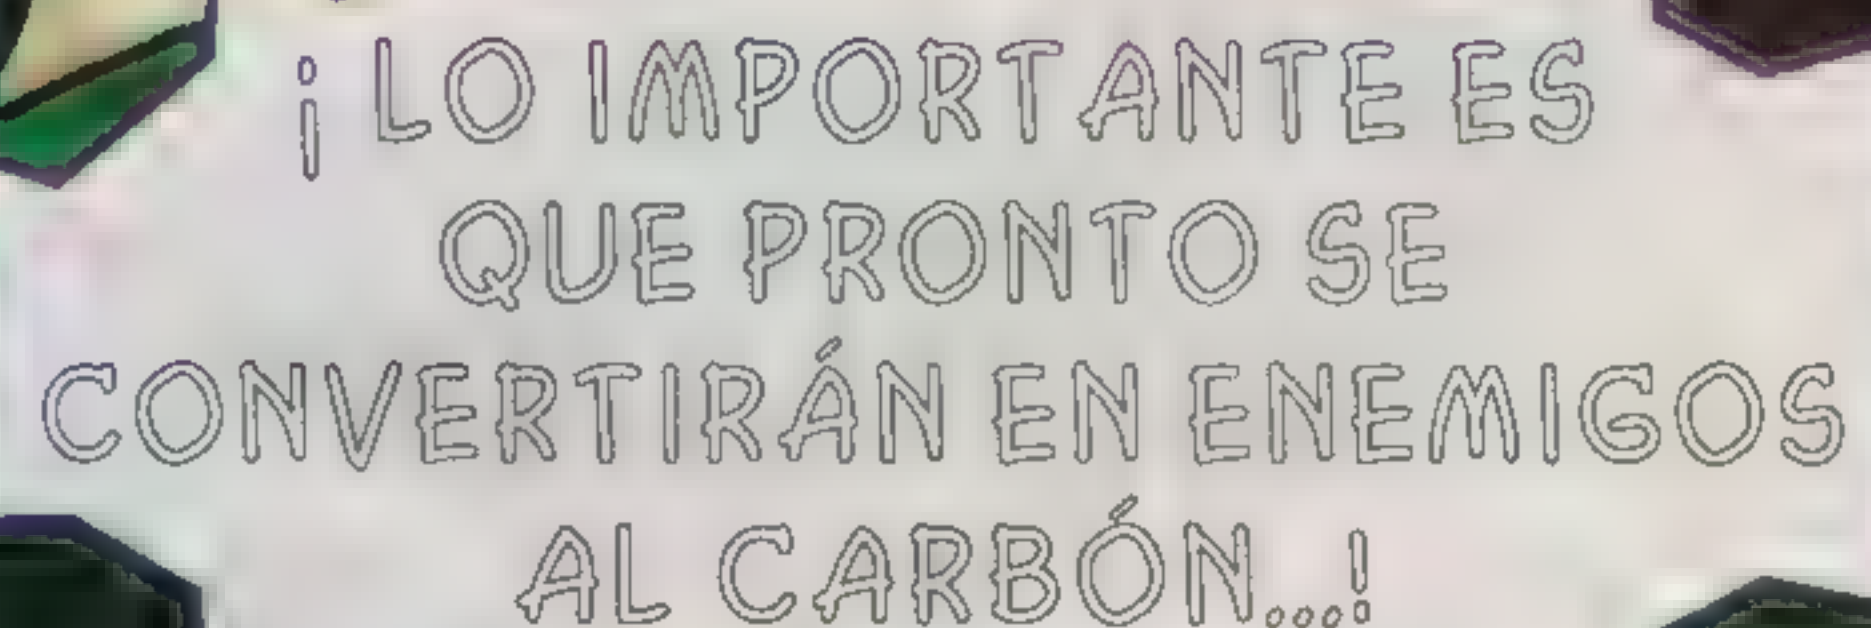 ¡LO IMPORTANTE ES
QUE PRONTO SE
CONVERTIRÁN EN ENEMIGOS
AL CARBÓN...!